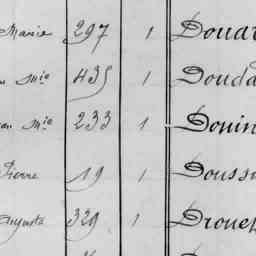 Marie 297 1 Douar
Mie 435 1 Douda
Mie 233 1 Douin
Pierre 19 1 Doussi
Auguste 329 1 Drouet